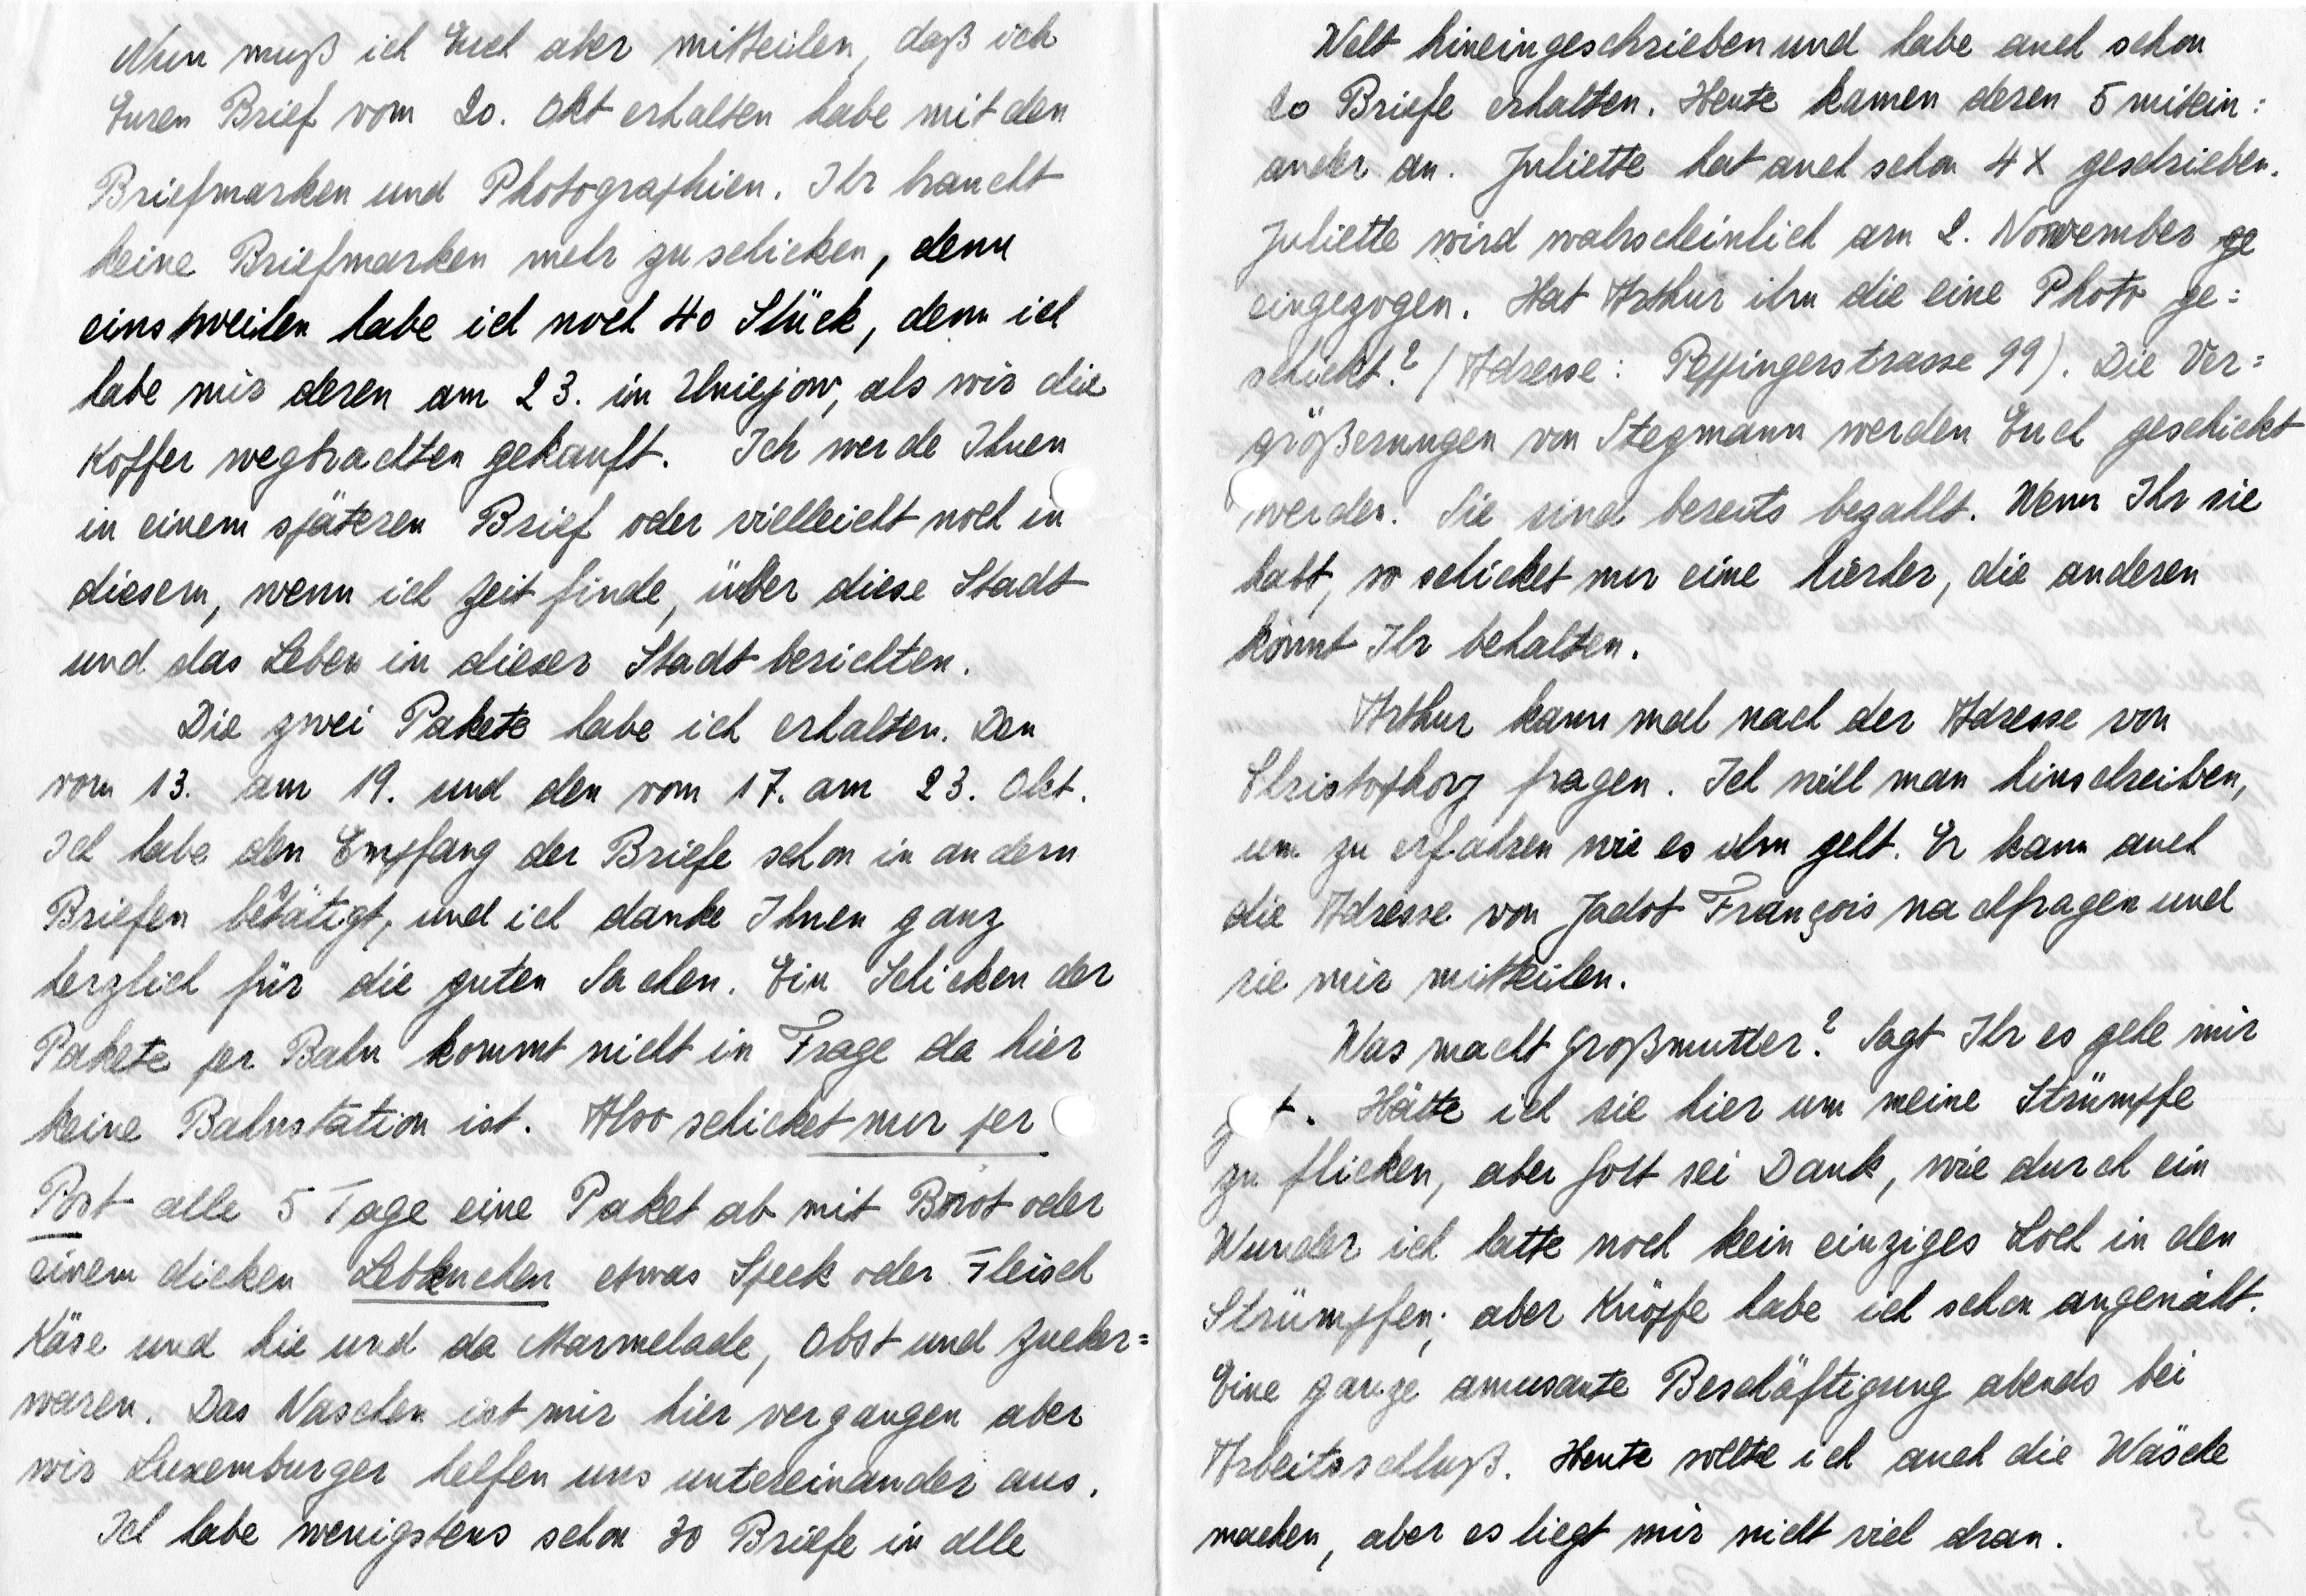 Nun muß ich Euch aber mitteilen, daß ich
Euren Brief vom 20. Okt erhalten habe mit den
Briefmarken und Photographien. Ihr braucht
keine Briefmarken mehr zu schicken, denn
einstweilen habe ich noch 40 Stück, denn ich
habe mir deren am 23. in Uniejow, als wir die
Koffer wegbrachten gekauft. Ich werde Ihnen
in einem späteren Brief oder vielleicht noch in
diesem, wenn ich Zeit finde, über diese Stadt
und das Leben in dieser Stadt berichten.
Die zwei Pakete habe ich erhalten. Den
vom 13. am 19. und den vom 17. am 23. Okt.
Ich habe den Empfang der Briefe schon in andern
Briefen bestätigt, und ich danke Ihnen ganz
herzlich für die guten Sachen. Ein Schicken der
Pakete per Bahn kommt nicht in Frage da hier
keine Bahnstation ist. Also schicket nur per
Post alle 5 Tage eine Paket ab mit Brot oder
einem dicken Lebkuchen etwas Speck oder Fleisch
Käse und hie und da Marmelade, Obst und Zucker=
waren. Das Naschen ist mir hier vergangen aber
wir Luxemburger helfen uns untereinander aus.
Ich habe wenigstens schon 30 Briefe in alle
Welt hineingeschrieben und habe auch schon
20 Briefe erhalten. Heute kamen deren 5 mitein:
ander an. Juliette hat auch schon 4 x geschrieben.
Juliette wird wahrscheinlich am 2. November ge
eingezogen. Hat Arthur ihm die eine Photo ge:
schickt? (Adresse: Peppingerstrasse 99). Die Ver=
größerungen von Stegmann werden Euch geschickt
werden. Sie sind bereits bezahlt. Wenn Ihr sie
habt, so schicket mir eine hierher, die anderen
könnt Ihr behalten.
Arthur kann mal nach der Adresse von
Christophory fragen. Ich will man hinschreiben,
um zu erfahren wie es ihm geht. Er kann auch
die Adresse von Jadot François nachfragen und
sie mir mitteilen.
Was macht Großmutter? Sagt Ihr es gehe mir
g t. Hätte ich sie hier um meine Strümpfe
zu flicken, aber Gott sei Dank, wie durch ein
Wunder ich hatte noch kein einziges Loch in den
Strümpfen; aber Knöpfe habe ich schon angenäht.
Eine ganze amusante Beschäftigung abends bei
Arbeitsschluß. Heute wollte ich auch die Wäsche
machen, aber es liegt mir nicht viel dran.